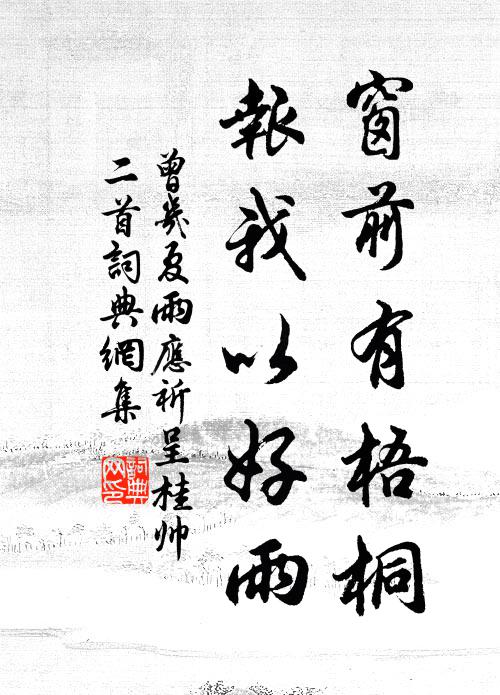 窗前有梧桐
報我以好雨
曾幾夏雨應祈呈桂帅
二首詞典網集
詞典
网印